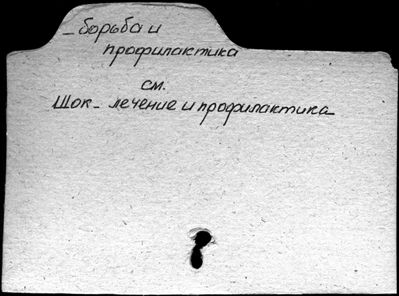 _ борьба и
профилактика
см.
Шок_ лечение и профилактика